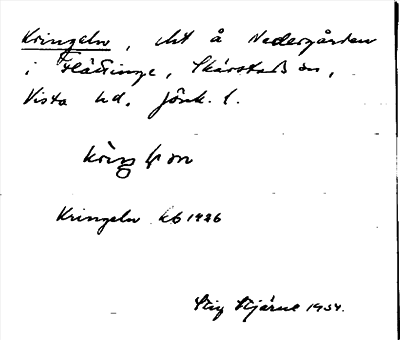 Kringeln, åt å Nedergården
i Flättinge, Skärstads sn,
Vista hd. Jönk. l.
Kringeln kb 1926
Stig Stjärne 1934.